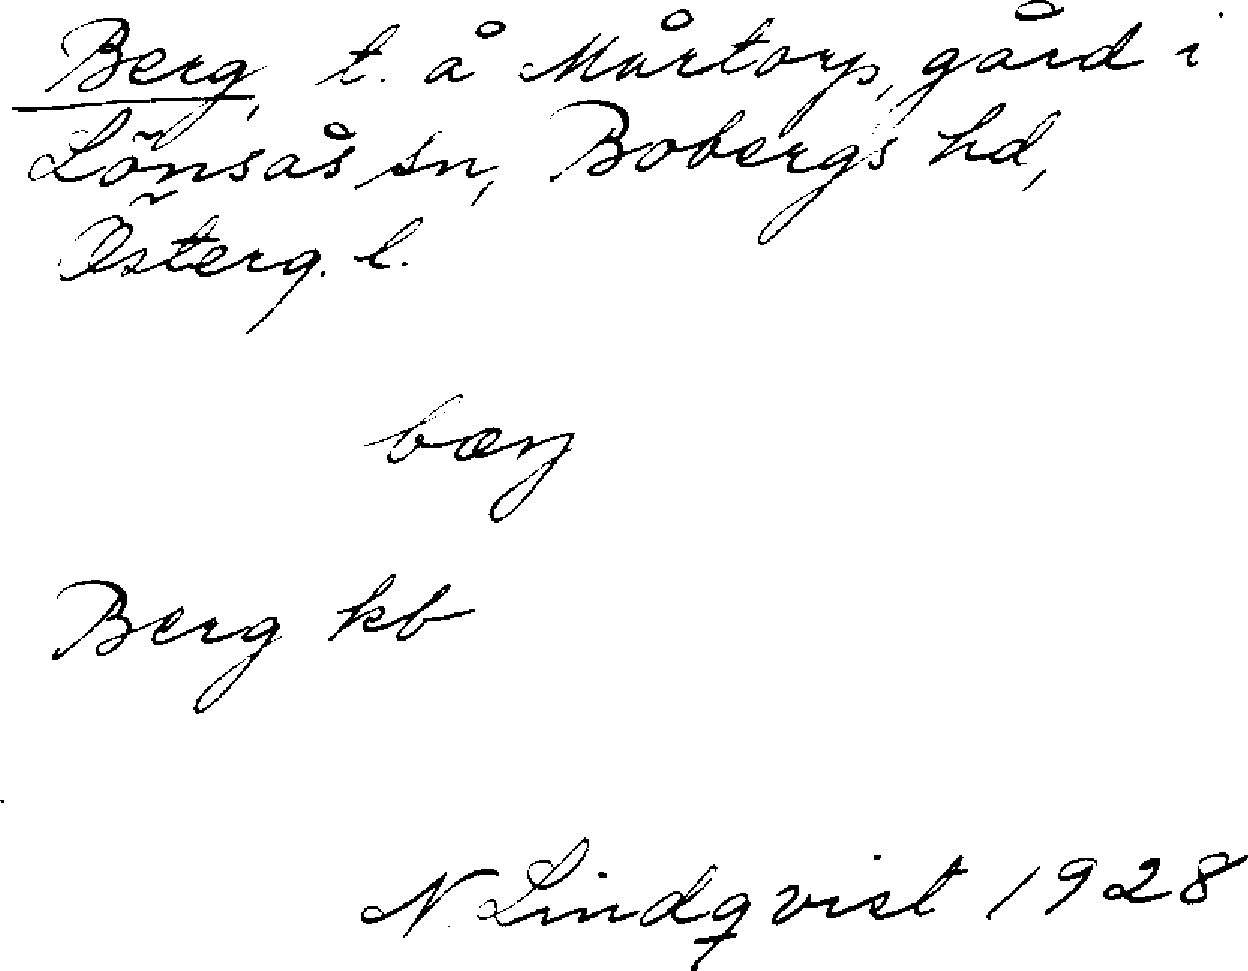 Berg, t. å Mårtorp, gård i
Lönsås sn, Bobergs hd,
Österg. l.
bærj
Berg kb
N. Lindqvist 1928